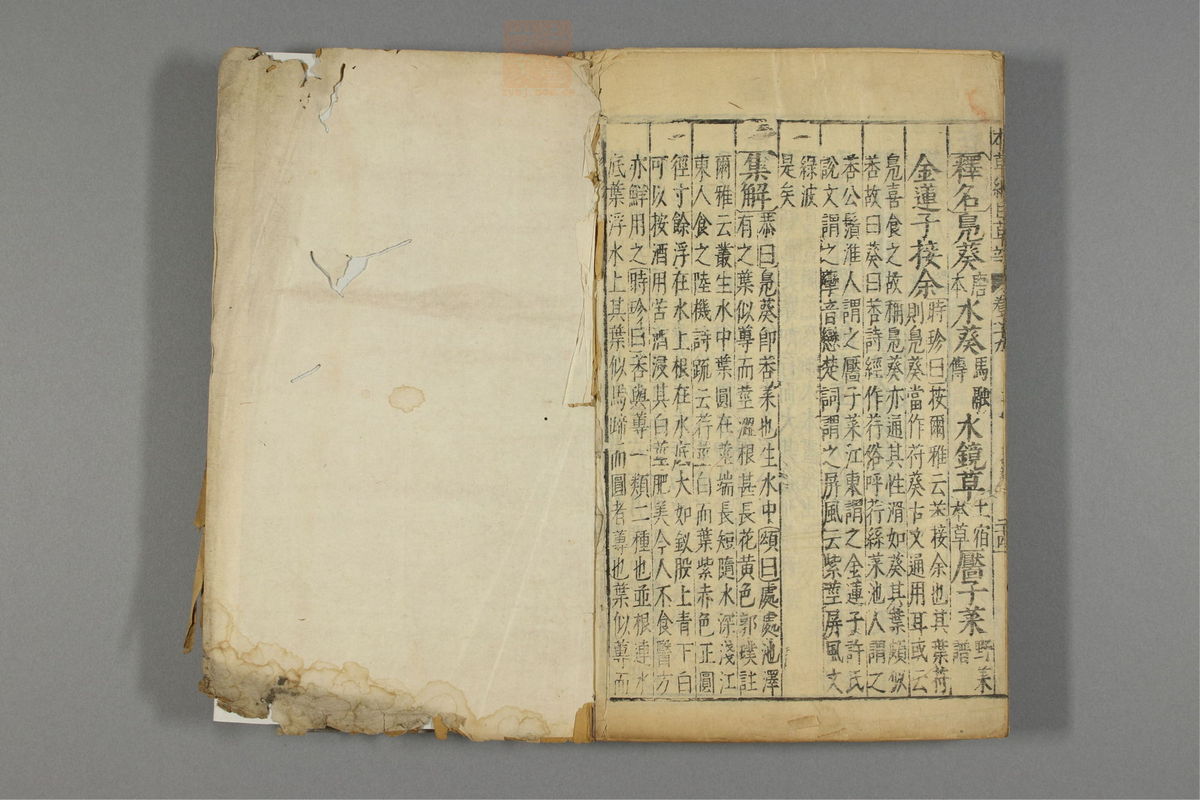 釋名鳧葵唐本水葵馬融傳水鏡草土宿本草靨子菜野菜譜
金蓮子接余時珍曰按爾雅云莕接余也其葉苻則鳧葵當作苻葵古文通用耳或云
鳧喜食之故稱鳧葵亦通其性滑如葵其葉頗似
莕故曰葵曰莕詩經作荇俗呼荇絲菜池人謂之
莕公鬚淮人謂之靨子菜江東謂之金蓮子許氏
說文謂之䕕音戀楚詞謂之屏風云紫莖屏風文
綠波
是矣
集解恭曰鳧葵即莕菜也生水中頌曰處處池澤
有之葉似蓴而莖澀根甚長花黃色郭璞註
爾雅云叢生水中葉圓在莖端長短隨水深淺江
東人食之陸機詩疏云荇莖白而葉紫赤色正圓
徑寸餘浮在水上根在水底大如釵股上青下白
可以按酒用苦酒浸其白莖肥美今人不食醫方
亦鮮用之時珍曰莕與蓴一類二種也並根連水
底葉浮水上其葉似馬蹄而圓者蓴也葉似蓴而